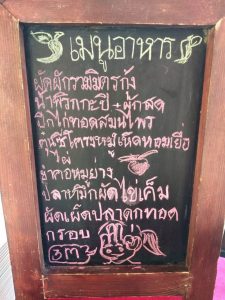 เมนูอาหาร
ผัดผักรวมมิตรกุ้ง
น้ำพริกกะปิ+ผักสด
ปีกไก่ทอดสมุนไพร
ซี่โครงหมูเห็ดหอมเยื่อ
ไผ่
ยำคอหมูย่าง
ปลาหมึกผัดไข่เค็ม
ผัดเผ็ดปลาดุกทอด
กรอบ